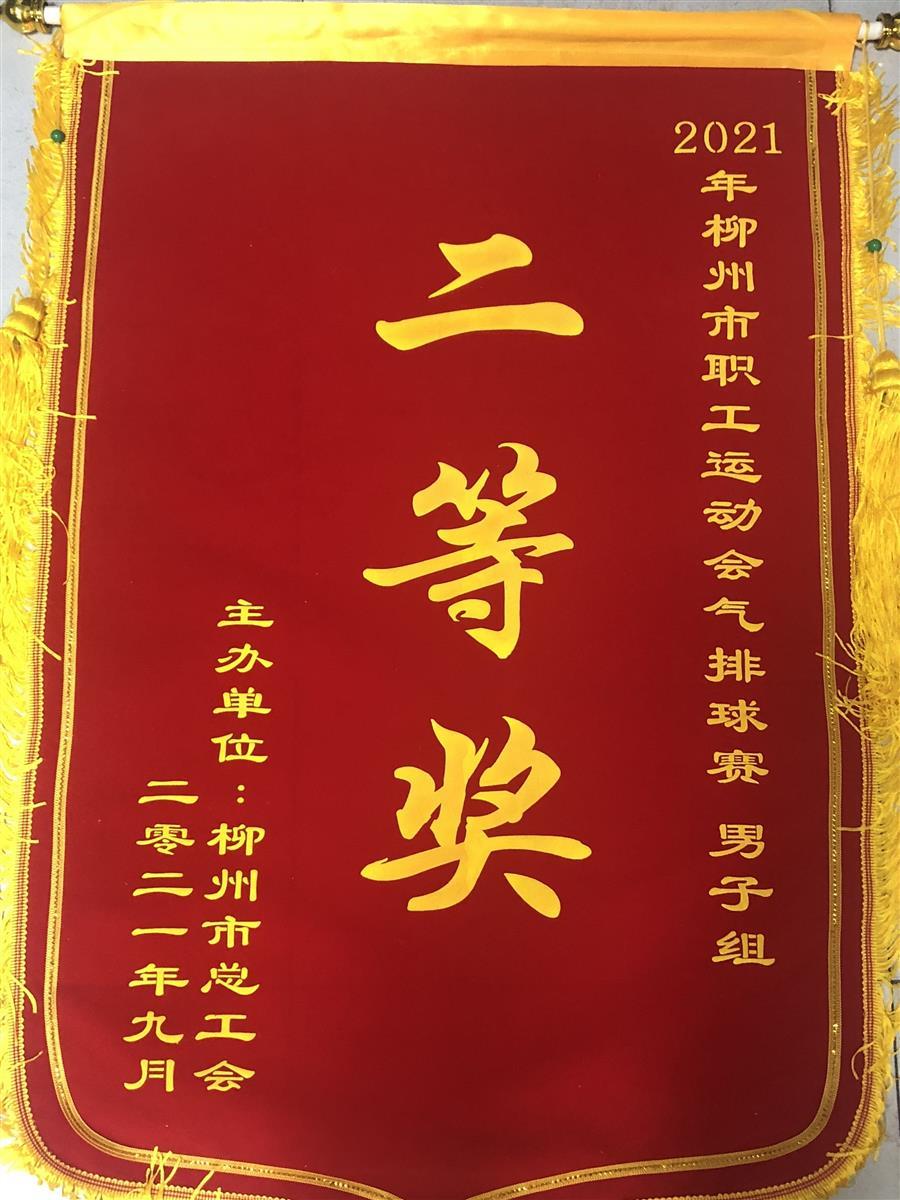 2021年柳州市职工运动会气排球赛 男子组
二等奖
主办单位：柳州市总工会
二零二一年九月